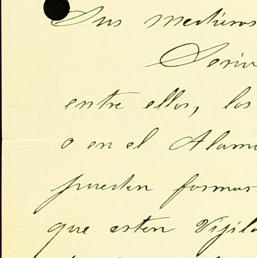 Sus medieros
Seria
entre ellos, los
o en el Alamo
puedan formar
que esten Vigila